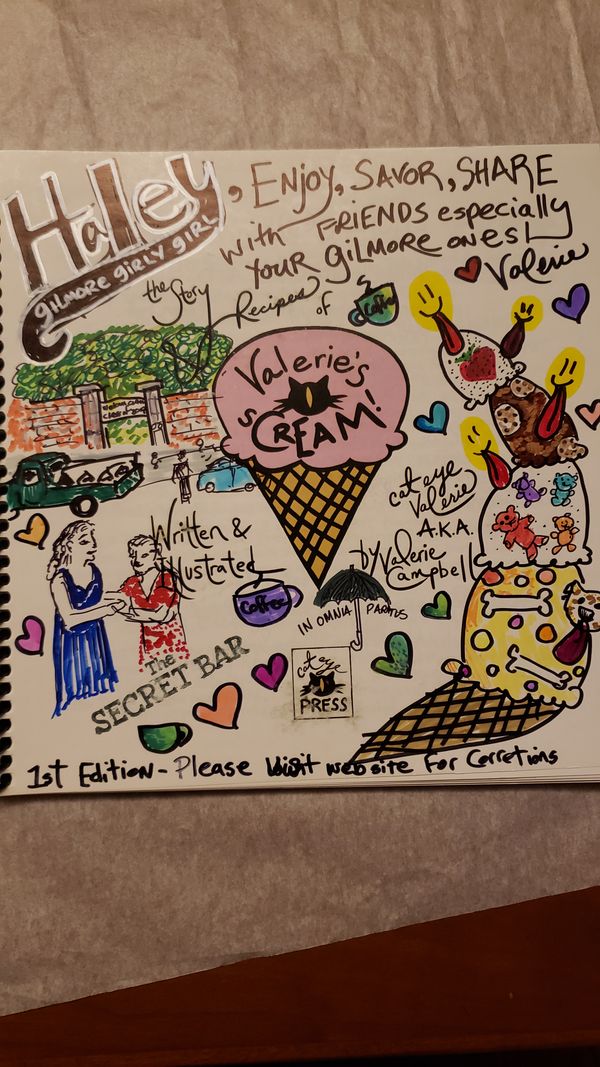 Haley
gilmore girly girl
, Enjoy, Savor, SHARE
with FRIENDS especially
your gilmore ones!
Valerie
the Story
& Recipes of
Coffee
Valerie's
sCREAM!
cat eye
Valerie
A.K.A.
by Valerie
Campbell
Written &
Illustrated
Coffee
IN OMNIA PARATUS
The
SECRET BAR
cat eye
PRESS
1st Edition - Please visit website for Corretions